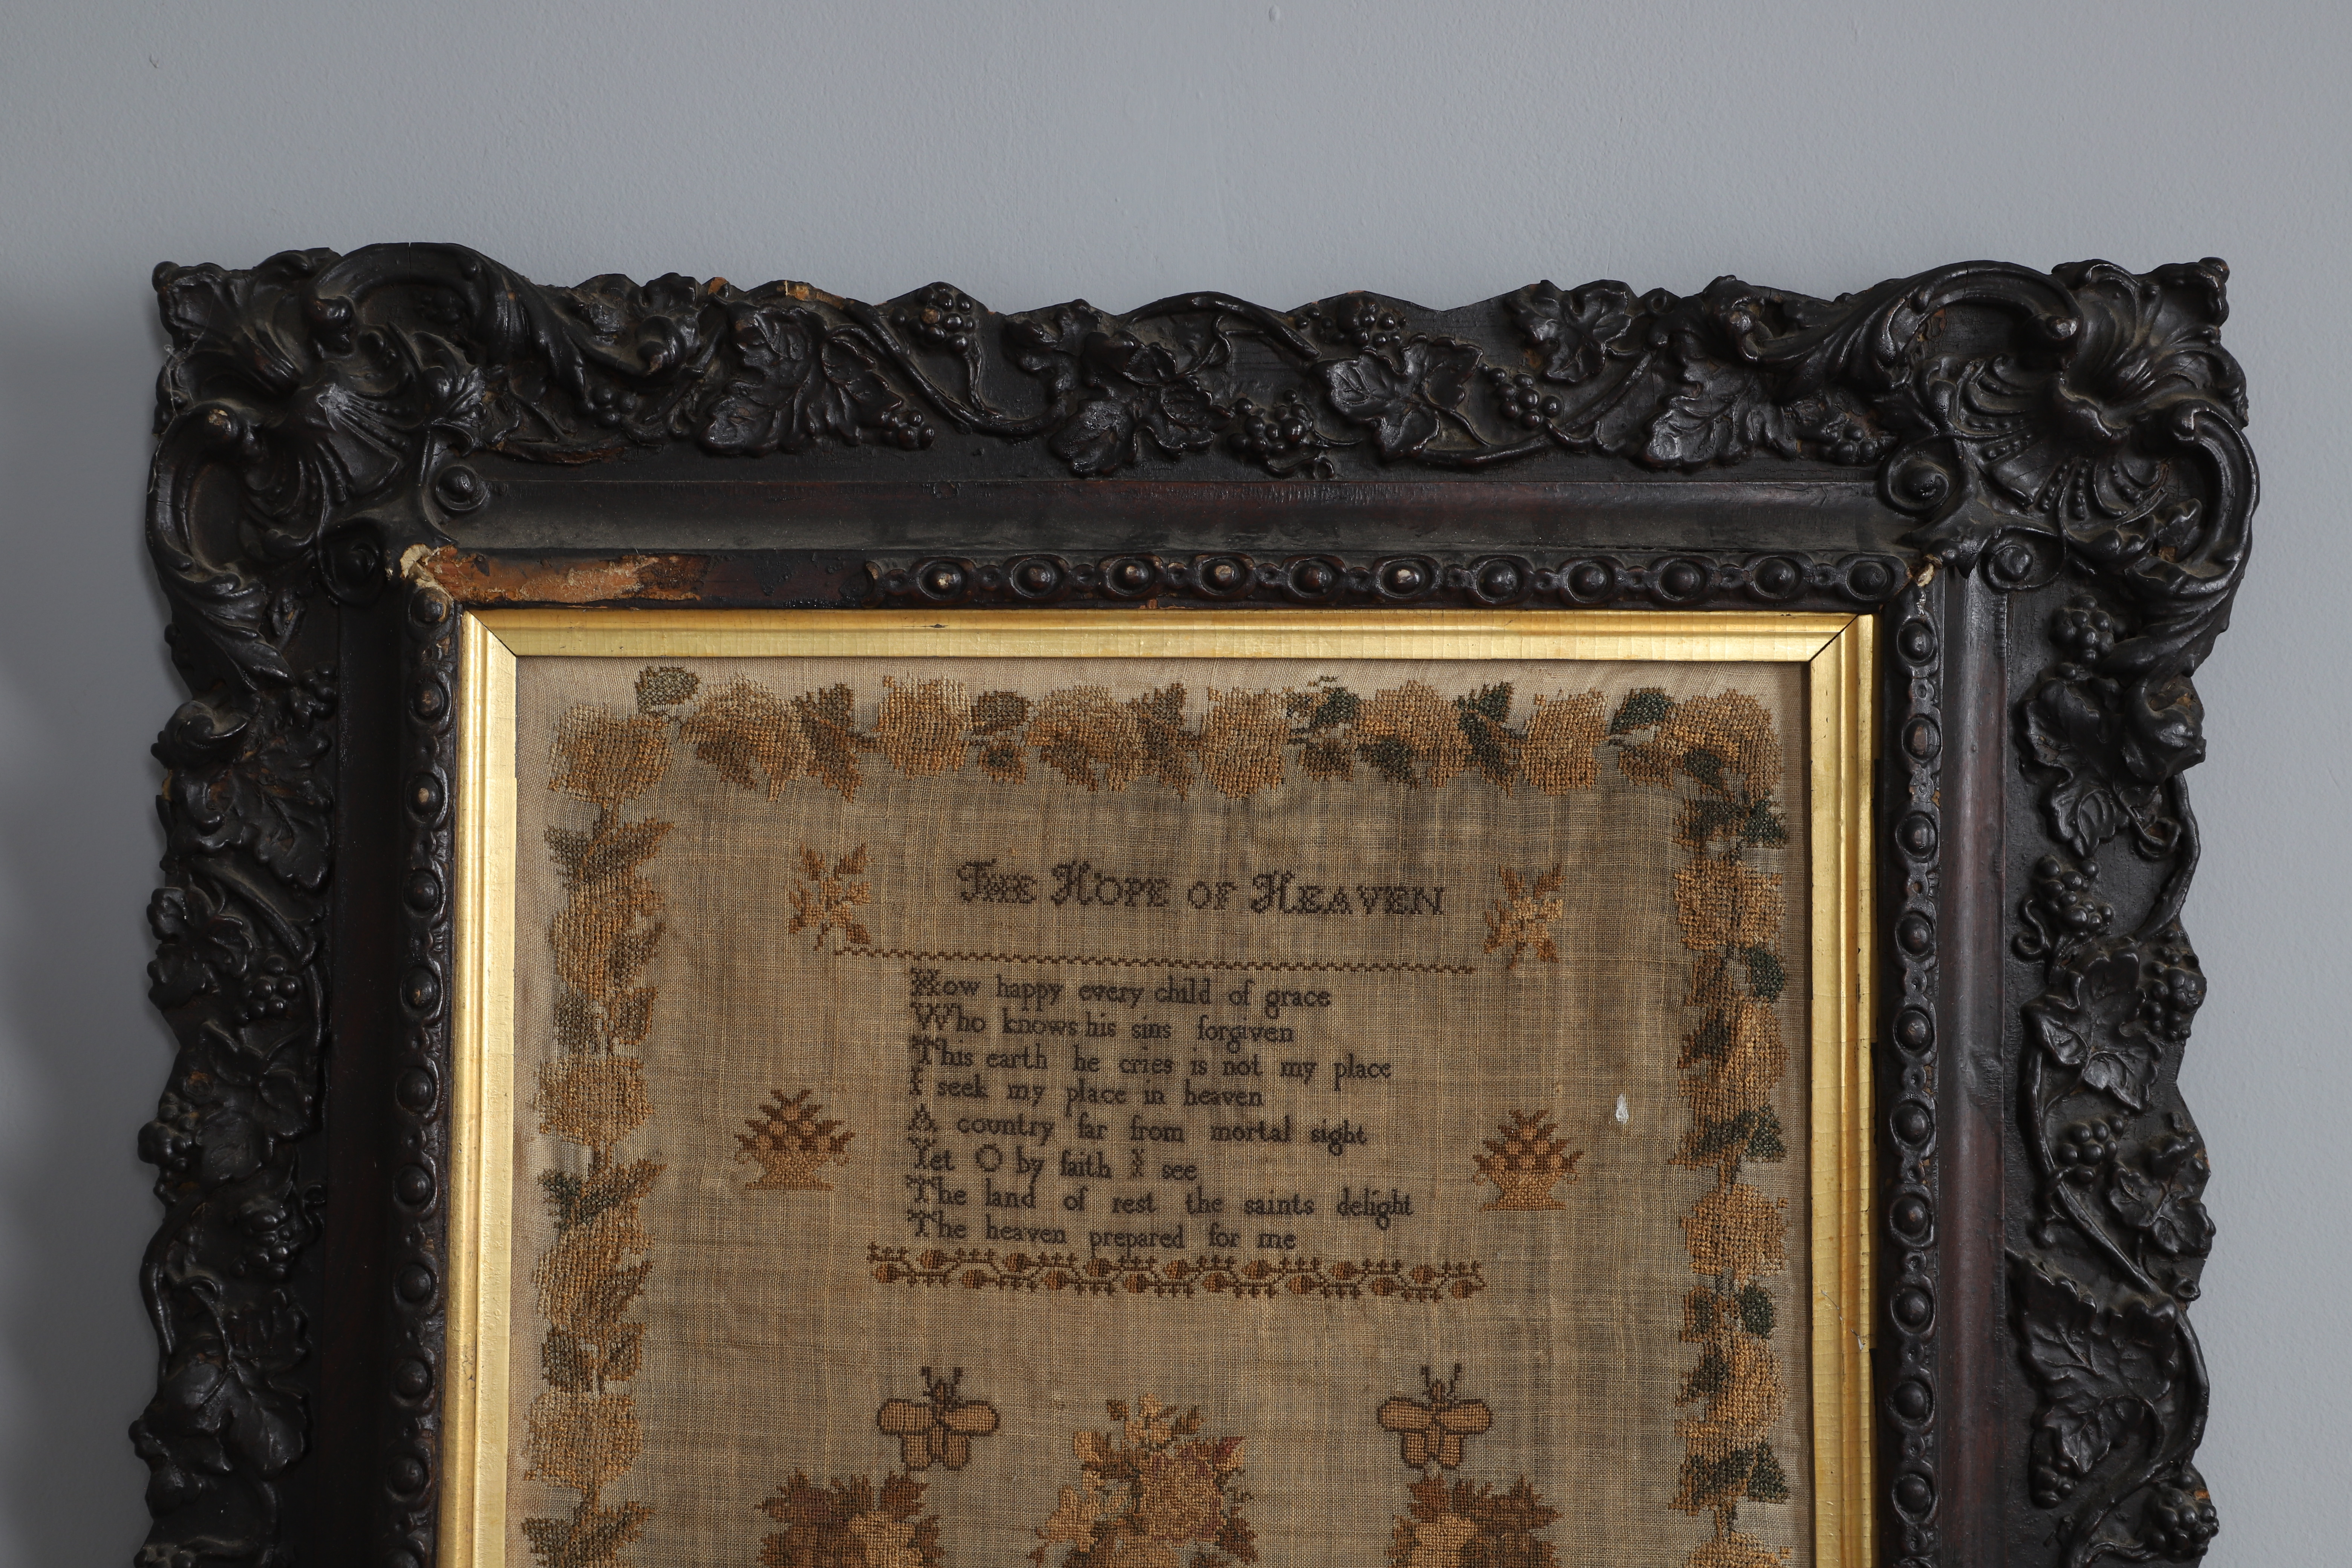 THE HOPE OF HEAVEN
How happy every child of grace
Who knows his sins forgiven
This earth he cries is not my place
I seek my place in heaven
A country far from mortal sight
Yet O by faith I see
The land of rest the saints delight
The heaven prepared for me